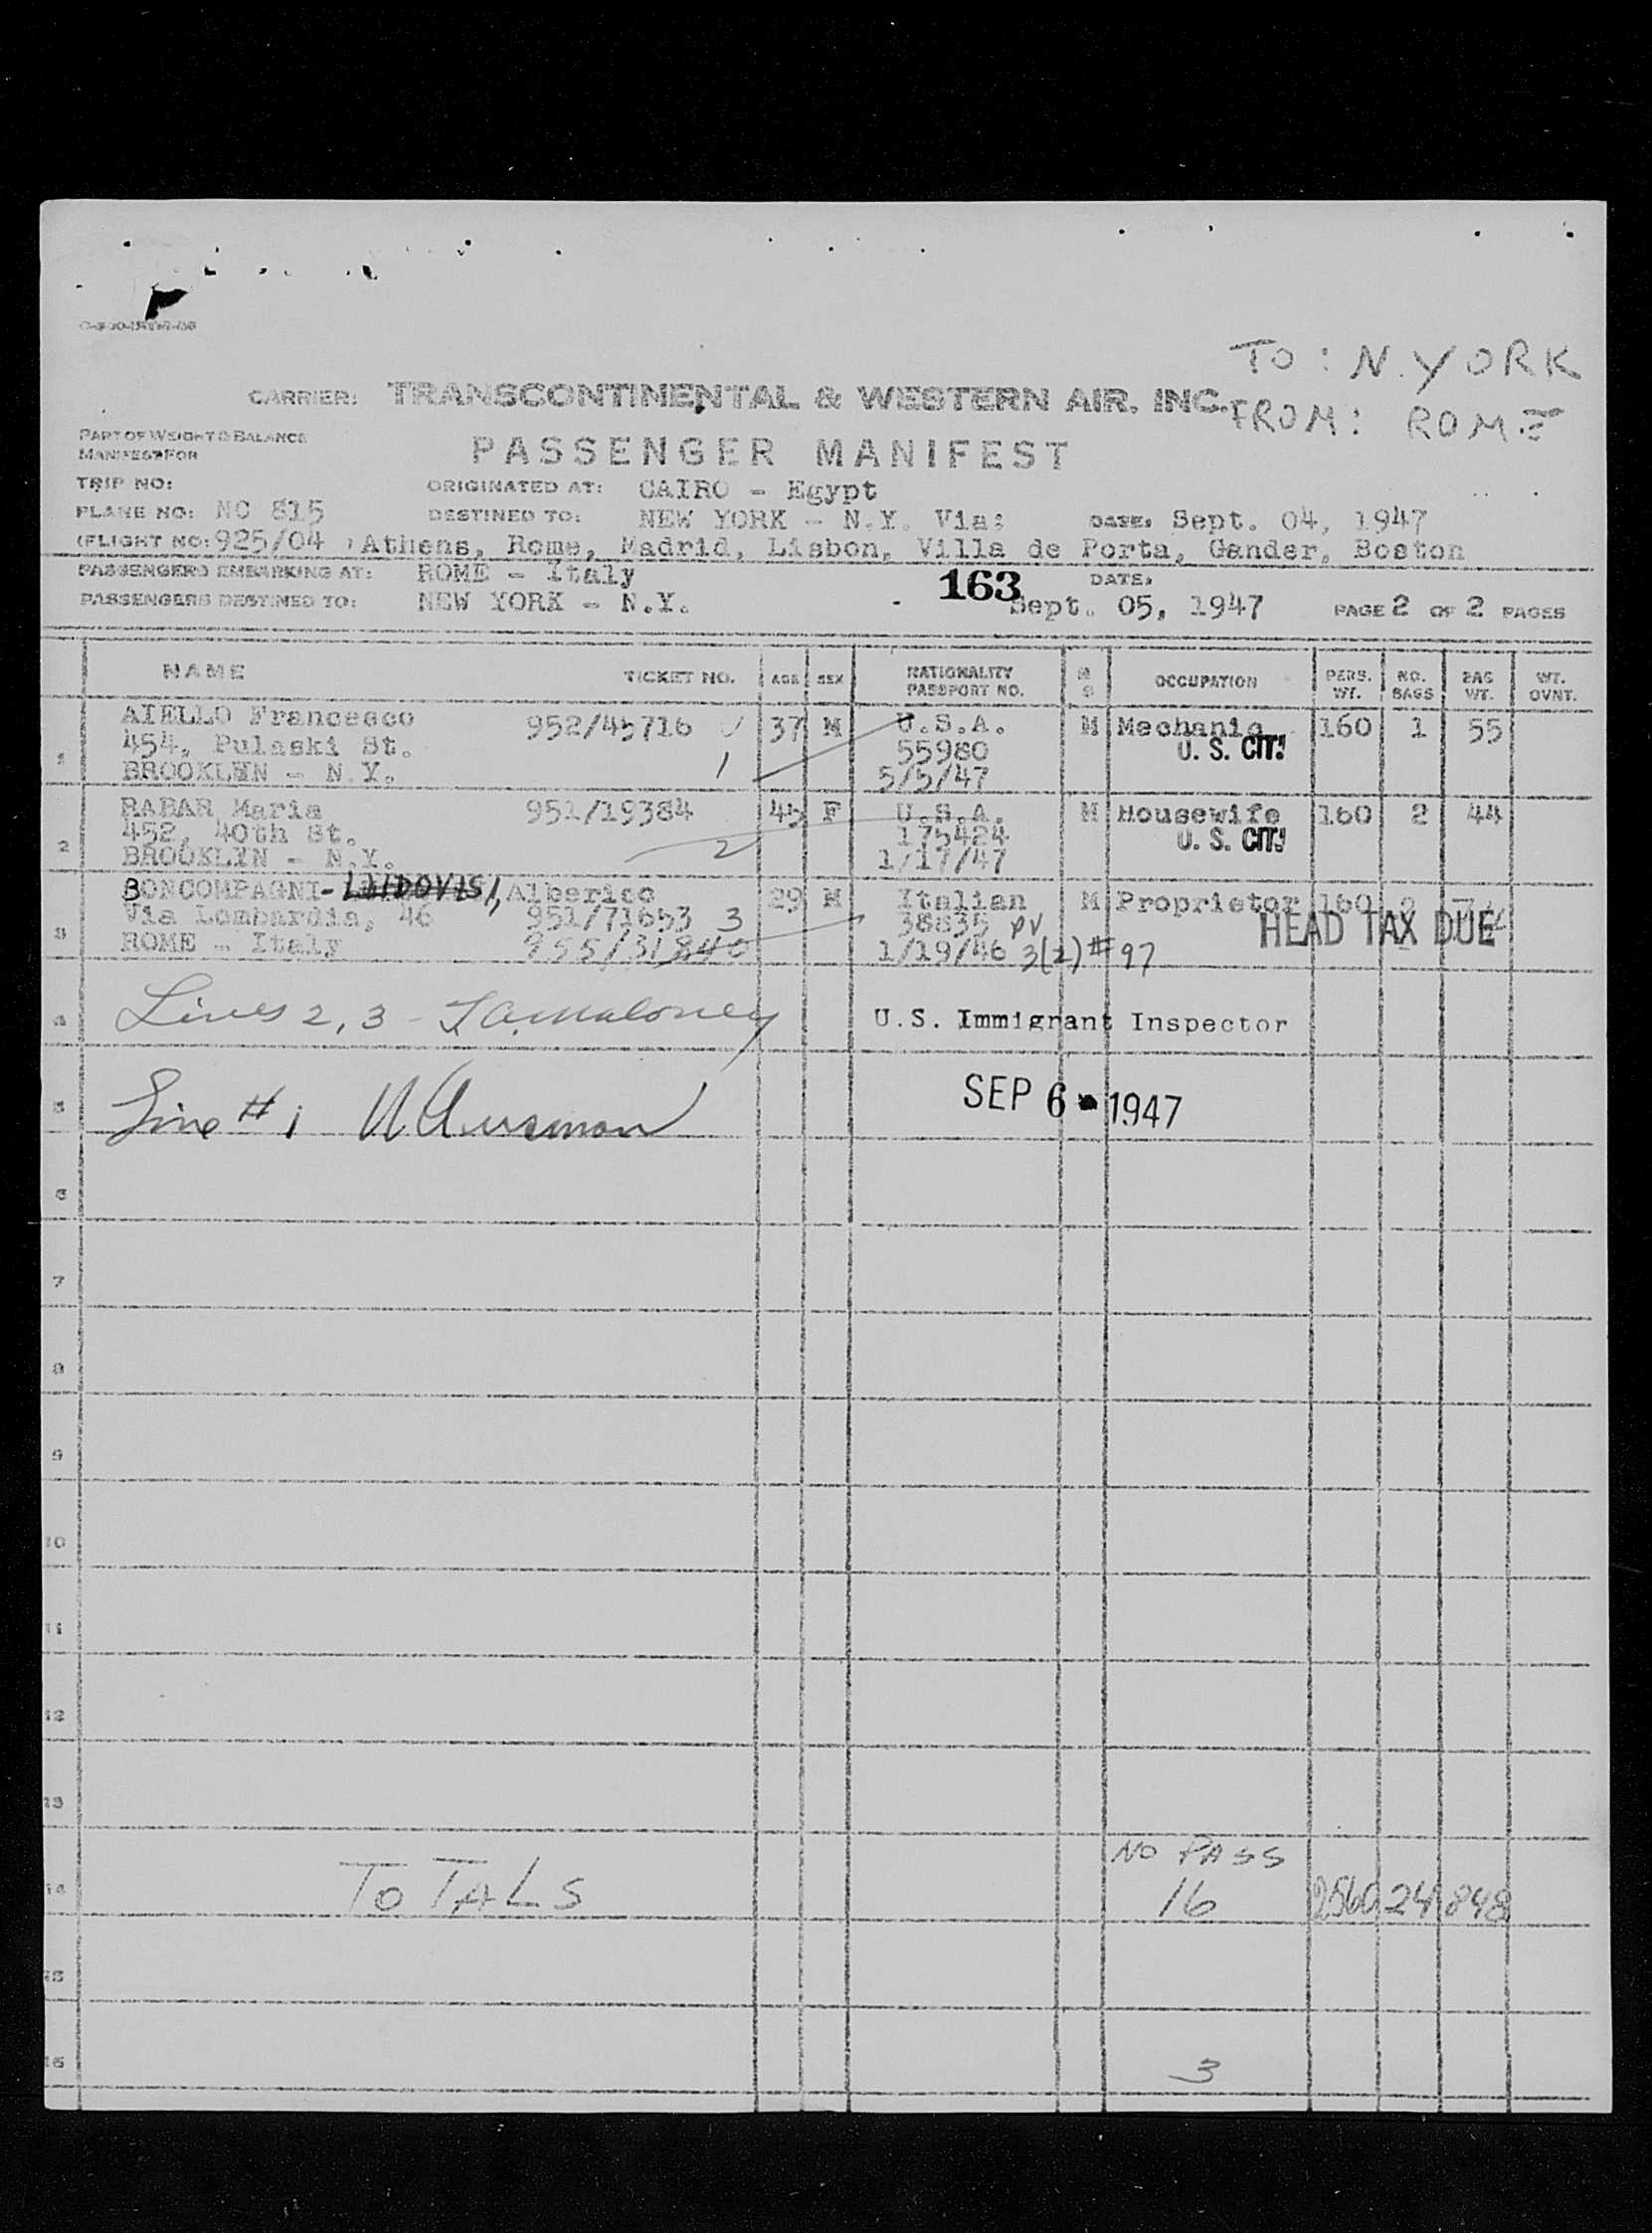 TO: N.YORK
CARRIER: TRANSCONTINENTAL & WESTERN AIR. INC.
FROM: ROME
PART OF WEIGHT & BALANCE
MANIFEST FOR
PASSENGER MANIFEST
TRIP NO:
ORIGINATED AT: CAIRO - Egypt
PLANE NO: NC 815
DESTINED TO: NEW YORK - N.Y. Via: DATE: Sept. 04, 1947
(FLIGHT NO: 925/04 ) Athens, Rome, Madrid, Lisbon, Villa de Porta, Gander, Boston
PASSENGERS EMBARKING AT: ROME - Italy 163 DATE:
PASSENGERS DESTINED TO: NEW YORK - N.Y. Sept. 05, 1947 PAGE 2 OF 2 PAGES
NAME TICKET NO. AGE SEX NATIONALITY PASSPORT NO. M S OCCUPATION PERS. WT. NO. BAGS BAG WT. WT. OVNT.
1 AIELLO Francesco 952/45716 37 M U.S.A. M Mechanic 160 1 55
454, Pulaski St. 55980 U. S. CIT.
BROOKLYN - N.Y. 1 5/5/47
2 RABAR Maria 951/19384 45 F U.S.A. M Housewife 160 2 44
452, 40th St. 175424 U. S. CIT.
BROOKLYN - N.Y. 2 1/17/47
3 BONCOMPAGNI-LUDOVISI, Alberico 29 M Italian M Proprietor 160
Via Lombardia, 46 951/71653 3 38835 PV HEAD TAX DUE
ROME - Italy 955/31840 1/19/46 3(2)#97
4 Lines 2, 3 - Maloney U.S. Immigrant Inspector
5 Line # 1 SEP 6 - 1947
6
7
8
9
10
11
12
13
NO PASS
14 TOTALS 16 2560 24 848
15
16 3